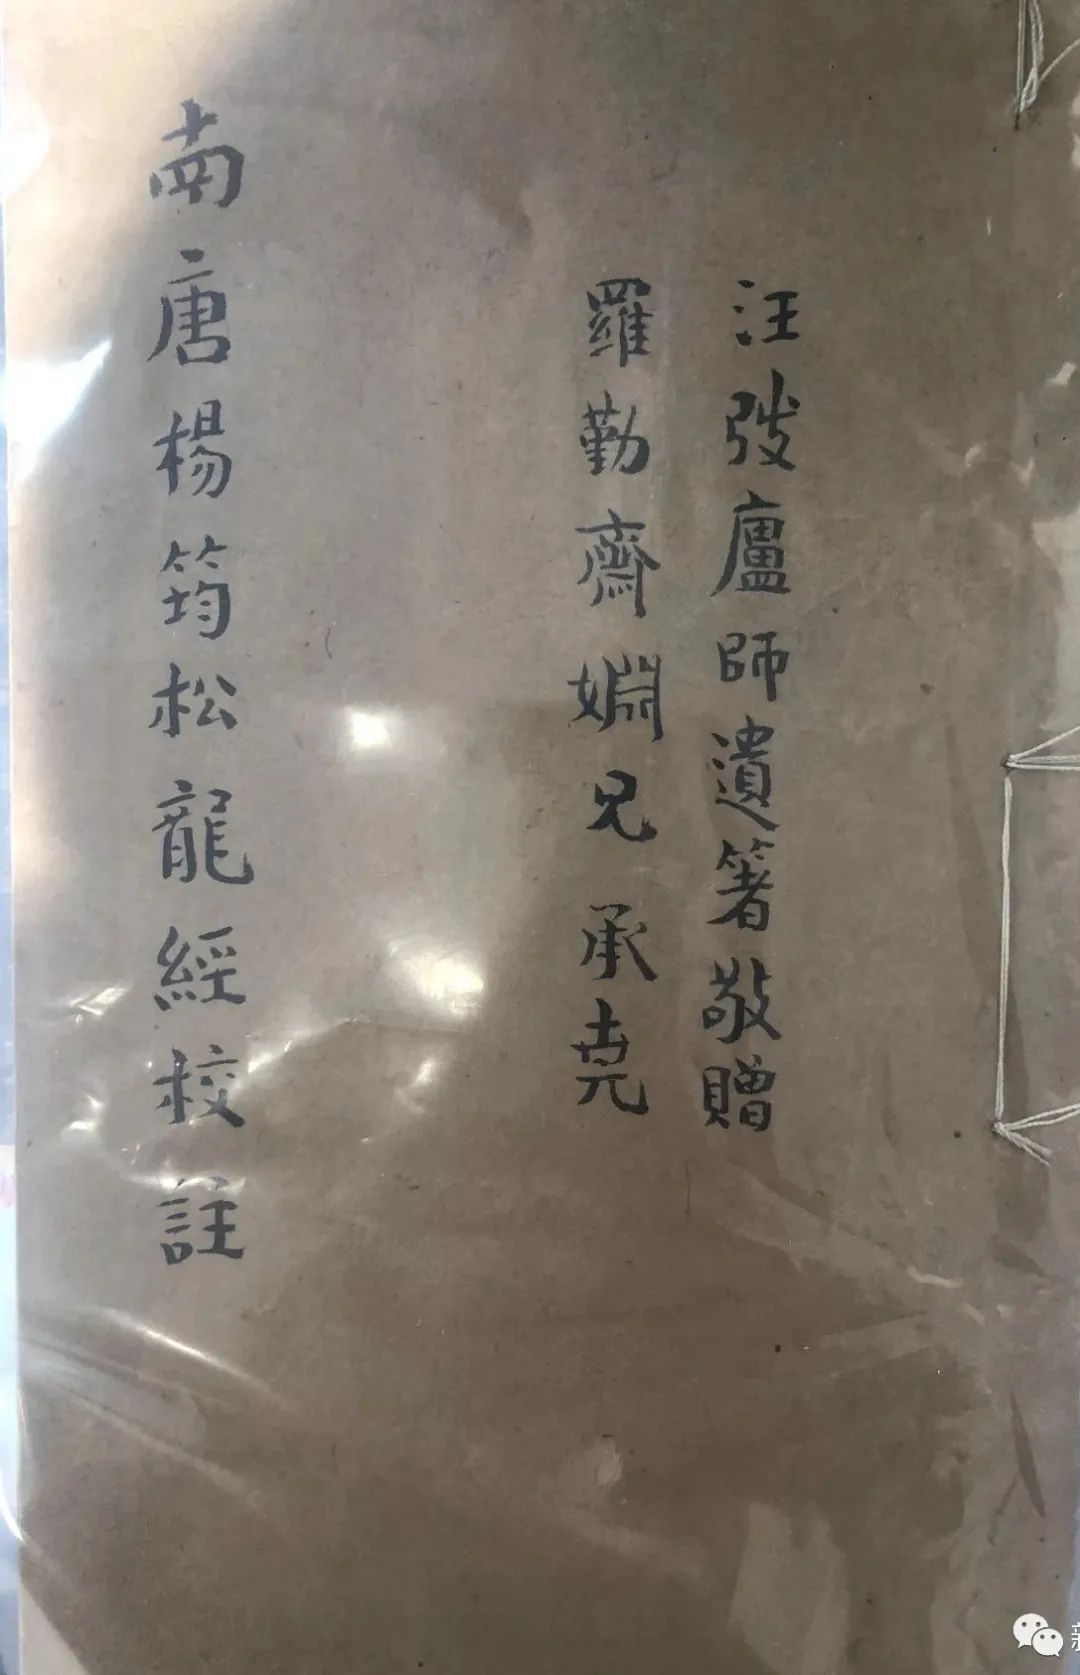 汪弢廬師遺箸敬贈
羅勤齋嫺兄 承堯
南唐楊筠松龍經校註